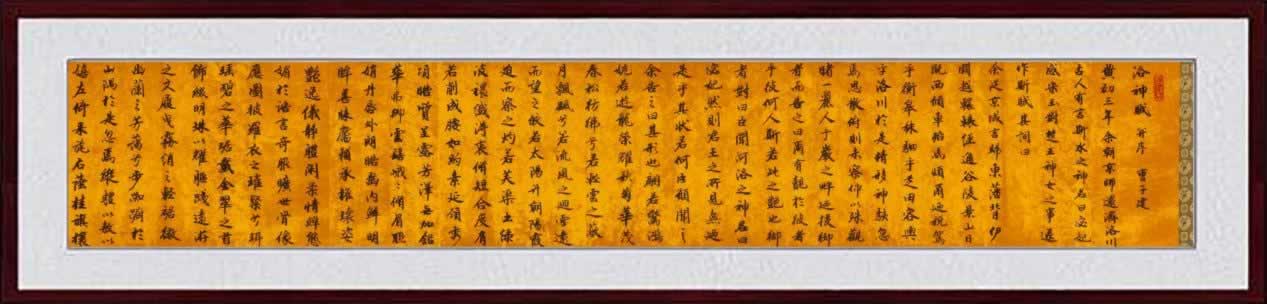 洛神賦 并序 曹子建
黃初三年余朝京師還濟洛川
古人有言斯水之神名曰宓妃
感宋玉對楚王神女之事遂
作斯賦其詞曰
余從京域言歸東藩背伊
闕越轘轅經通谷陵景山日
既西傾車殆馬煩爾迺稅駕
乎蘅皋秣駟乎芝田容與
乎洛川於是精移神駭忽
焉思散俯則未察仰以殊觀
睹一麗人于巖之畔迺援御
者而告之曰爾有覿於彼者
乎彼何人斯若此之豔也御
者對曰臣聞河洛之神名曰
宓妃然則君王之所見無迺
是乎其狀若何臣願聞之
余告之曰其形也翩若驚鴻
婉若遊龍榮曜秋菊華茂
春松髣髴兮若輕雲之蔽
月飄颻兮若流風之迴雪遠
而望之皎若太陽升朝霞
迫而察之灼若芙蕖出淥
波穠纖得衷脩短合度肩
若削成腰如約素延頸秀
項皓質呈露芳澤無加鉛
華弗御雲髻峨峨脩眉聯
娟丹脣外朗皓齒內鮮明
眸善睞靨輔承權瓌姿
豔逸儀靜體閑柔情綽態
媚於語言奇服曠世骨像
應圖披羅衣之璀粲兮珥
瑤碧之華琚戴金翠之首
飾綴明珠以耀軀踐遠遊
之文履曳霧綃之輕裾微
幽蘭之芳藹兮步踟躕於
山隅於是忽焉縱體以遨以
嬉左倚采旄右蔭桂旗攘